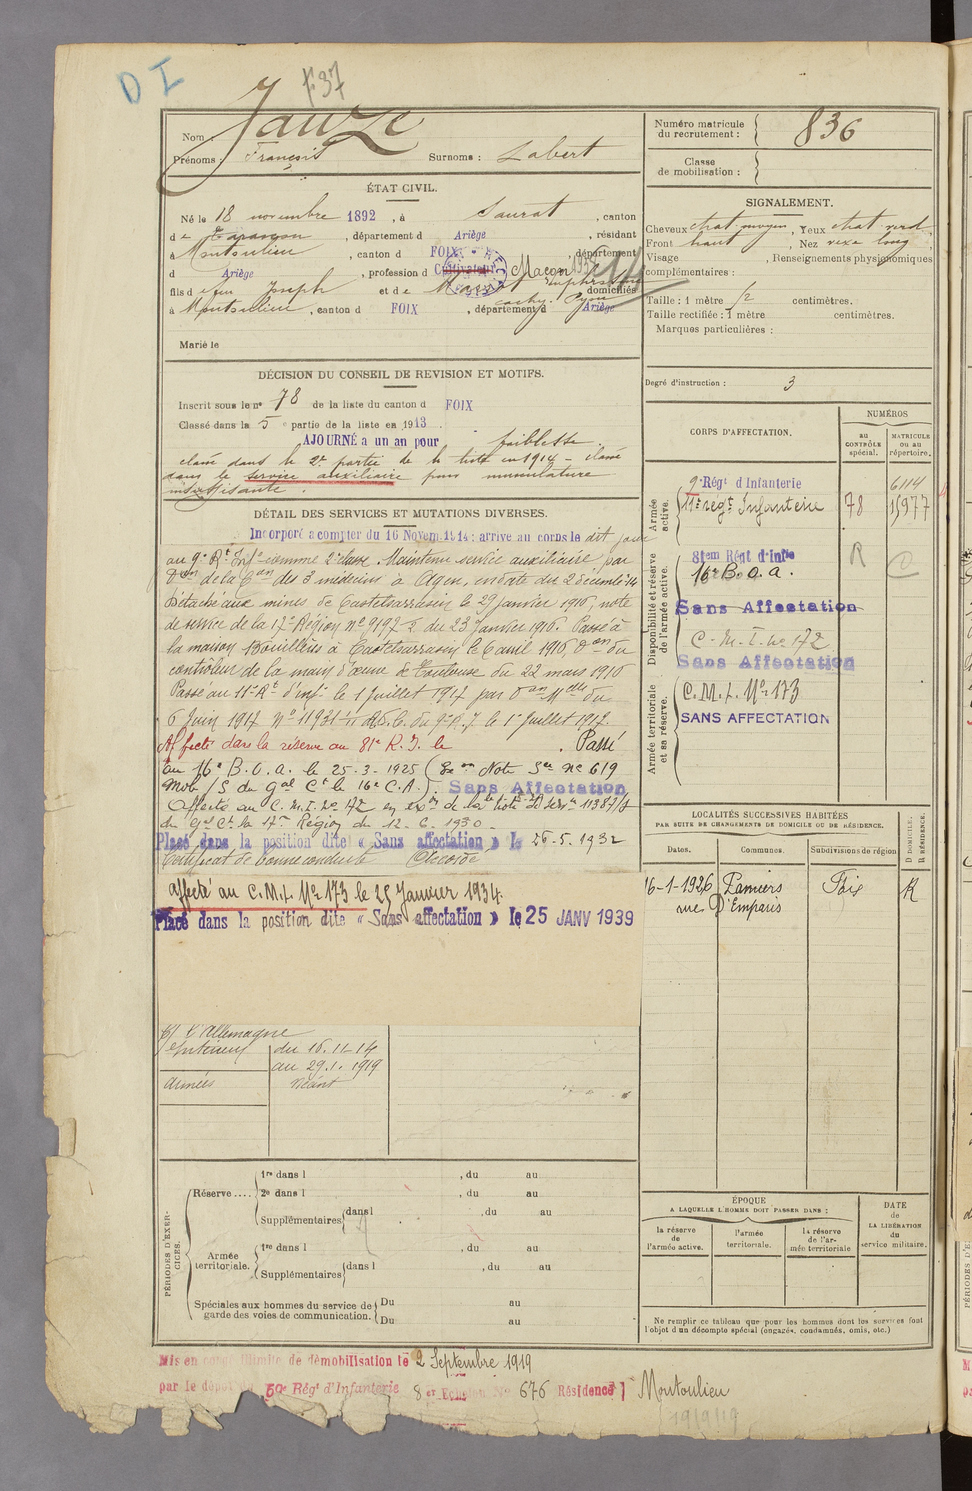 D I
F37
Nom : Jauze
Prénoms : François Surnoms : Labert
Numéro matricule du recrutement : 836
Classe de mobilisation :
ÉTAT CIVIL.
Né le 18 novembre 1892, à Saurat, canton
de Tarascon, département d Ariège, résidant
à Montoulieu, canton d FOIX, département
d Ariège, profession d Cultivateur Maçon
fils de feu Joseph et de domiciliés
à Montoulieu, canton d FOIX, département d Ariège
Marié le
SIGNALEMENT.
Cheveux chat. moyen, Yeux chat. verd.
Front haut, Nez vexe long
Visage , Renseignements physionomiques
complémentaires :
Taille : 1 mètre 72 centimètres.
Taille rectifiée : 1 mètre centimètres.
Marques particulières :
Degré d'instruction : 3
DÉCISION DU CONSEIL DE REVISION ET MOTIFS.
Inscrit sous le n° 78 de la liste du canton d FOIX
Classé dans la 5e partie de la liste en 1913
AJOURNÉ a un an pour faiblesse.
classé dans la 2e partie de la liste en 1914 - classé
dans le service auxiliaire pour musculature
insuffisante.
DÉTAIL DES SERVICES ET MUTATIONS DIVERSES.
Incorporé a compter du 16 Novem. 1914 : arrivé au corps le dit jour
au 9e Rt Infie comme 2e classe. Maintenu service auxiliaire, par
Don de la Con des 3 médecins à Agen, en date du 2 décembre 14
Détaché aux mines de Castelsarrasin le 29 janvier 1916, note
de service de la 17e Région no 9197-2 du 23 Janvier 1916. Passé à
la maison Bouillères à Castelsarrasin le 6 avril 1916, Don du
contrôleur de la main d'œuvre de Toulouse du 22 mars 1916
Passé au 11e Rt d'infie le 1 Juillet 1917 par Don Melle du
6 Juin 1917 No 11931 R.d.C. du 9e R.I. le 1er Juillet 1917.
Affecté dans la réserve au 81e R.I. le . Passé
au 16e B.O.a. le 25-3-1925 (Exon Note Sce No 619
Mob/S du Gal Ct le 16e C.A.). Sans Affectation
Affecté au C.M.I. No 72 en exon de la note de Sce no 11387/S
du Gal Ct la 17e Région du 12-6-1930
Placé dans la position dite « Sans affectation » le 26-5-1932
Certificat de bonne conduite Accordé
affecté au C.M.I. No 173 le 25 Janvier 1934.
Placé dans la position dite « Sans affectation » le 25 JANV 1939
C/ l'Allemagne
Intérieur du 16.11.14
au 29.1.1919
Armées Néant
CORPS D'AFFECTATION.
NUMÉROS
au CONTRÔLE spécial.
MATRICULE ou au répertoire.
Armée active.
9e Régt d'Infanterie 6114
11e régt Infanterie 78 15977
Disponibilité et réserve de l'armée active.
81em Régt d'Infie R C
16e B.O.a.
Sans Affectation
C.M.I. No 172
Sans Affectation
Armée territoriale et sa réserve.
C.M.I. No 173
SANS AFFECTATION
LOCALITÉS SUCCESSIVES HABITÉES
PAR SUITE DE CHANGEMENTS DE DOMICILE OU DE RÉSIDENCE.
Dates. Communes. Subdivisions de région D DOMICILE. R RÉSIDENCE.
16-1-1926 Pamiers Foix R
rue D'Emparis
PÉRIODES D'EXERCICES.
Réserve .... 1re dans l , du au
2e dans l , du au
Supplémentaires dans l , du au
Armée territoriale. 1re dans l , du au
Supplémentaires dans l , du au
Spéciales aux hommes du service de garde des voies de communication. Du au
Du au
ÉPOQUE
A LAQUELLE L'HOMME DOIT PASSER DANS :
la réserve de l'armée active.
l'armée territoriale.
la réserve de l'armée territoriale
DATE de LA LIBÉRATION du service militaire.
Ne remplir ce tableau que pour les hommes dont les services font
l'objet d'un décompte spécial (engagés, condamnés, omis, etc.)
Mis en congé illimité de démobilisation le 2 Septembre 1919
par le dépôt du 59e Régt d'Infanterie 8er Echelon No 676 Résidence Montoulieu
19/9/19